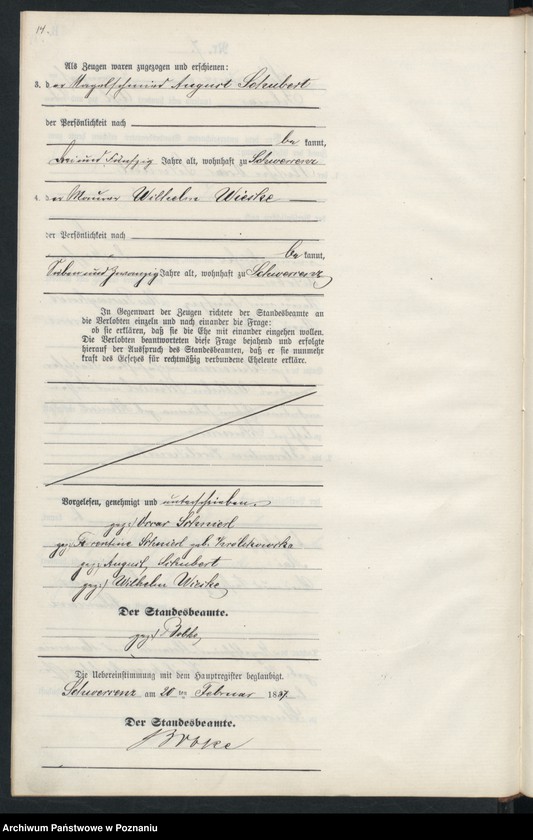 14.
Als Zeugen waren zugezogen und erschienen:
3. der Nagelschmied August Schubert
der Persönlichkeit nach
be kannt,
drei und fünfzig Jahre alt, wohnhaft zu Schwersenz
4. der Maurer Wilhelm Wieske
der Persönlichkeit nach
be kannt,
Sieben und zwanzig Jahre alt, wohnhaft zu Schwersenz
In Gegenwart der Zeugen richtete der Standesbeamte an
die Verlobten einzeln und nach einander die Frage:
ob sie erklären, daß sie die Ehe mit einander eingehen wollen.
Die Verlobten beantworteten diese Frage bejahend und erfolgte
hierauf der Ausspruch des Standesbeamten, daß er sie nunmehr
kraft des Gesetzes für rechtmäßig verbundene Eheleute erkläre.
Vorgelesen, genehmigt und unterschrieben.
gez. Oscar Schmiedl
gez. Florentine Schmiedl geb.
gez. August Schubert
gez. Wilhelm Wieske
Der Standesbeamte.
gez.
Die Uebereinstimmung mit dem Hauptregister beglaubigt.
Schwersenz am 20 ten Februar 1887
Der Standesbeamte.
Archiwum Państwowe w Poznaniu